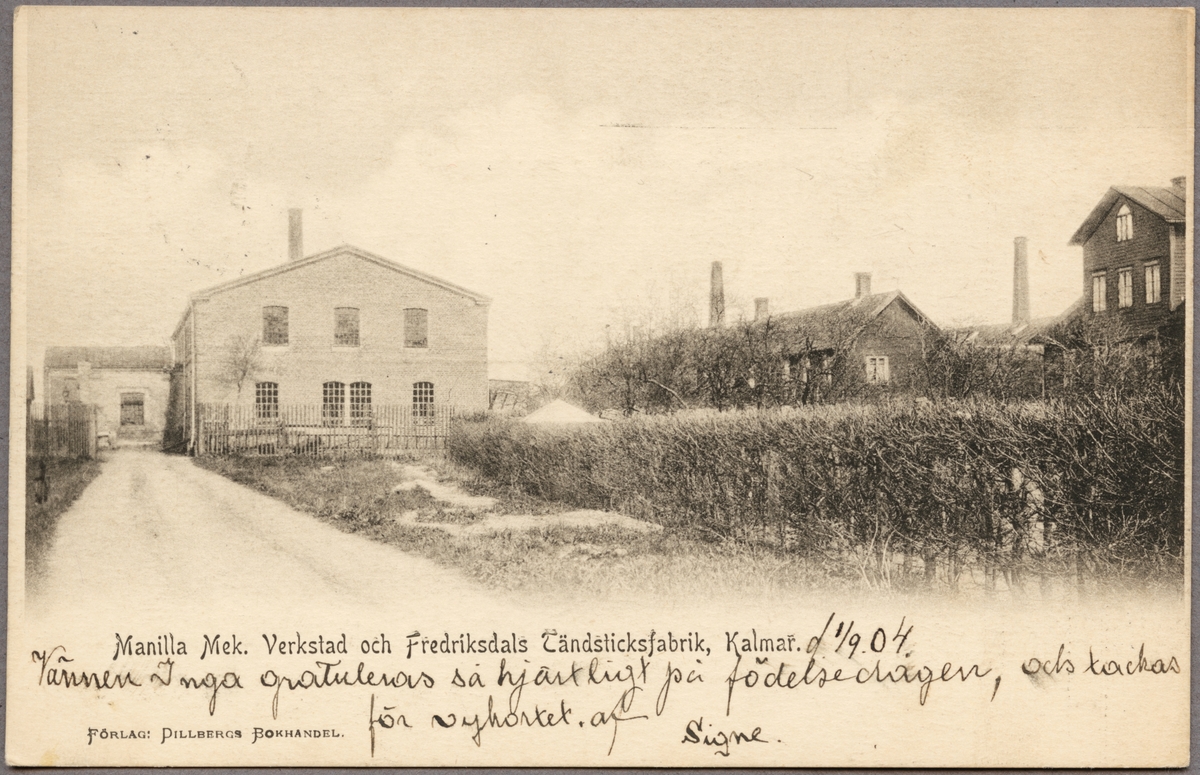 Manilla Mek. Verkstad och Fredriksdals Tändsticksfabrik, Kalmar. d 1/9.04.
Vännen Inga gratuleras så hjärtligt på födelsedagen, och tackas
för vykortet. af Signe.
FÖRLAG: DILLBERGS BOKHANDEL.